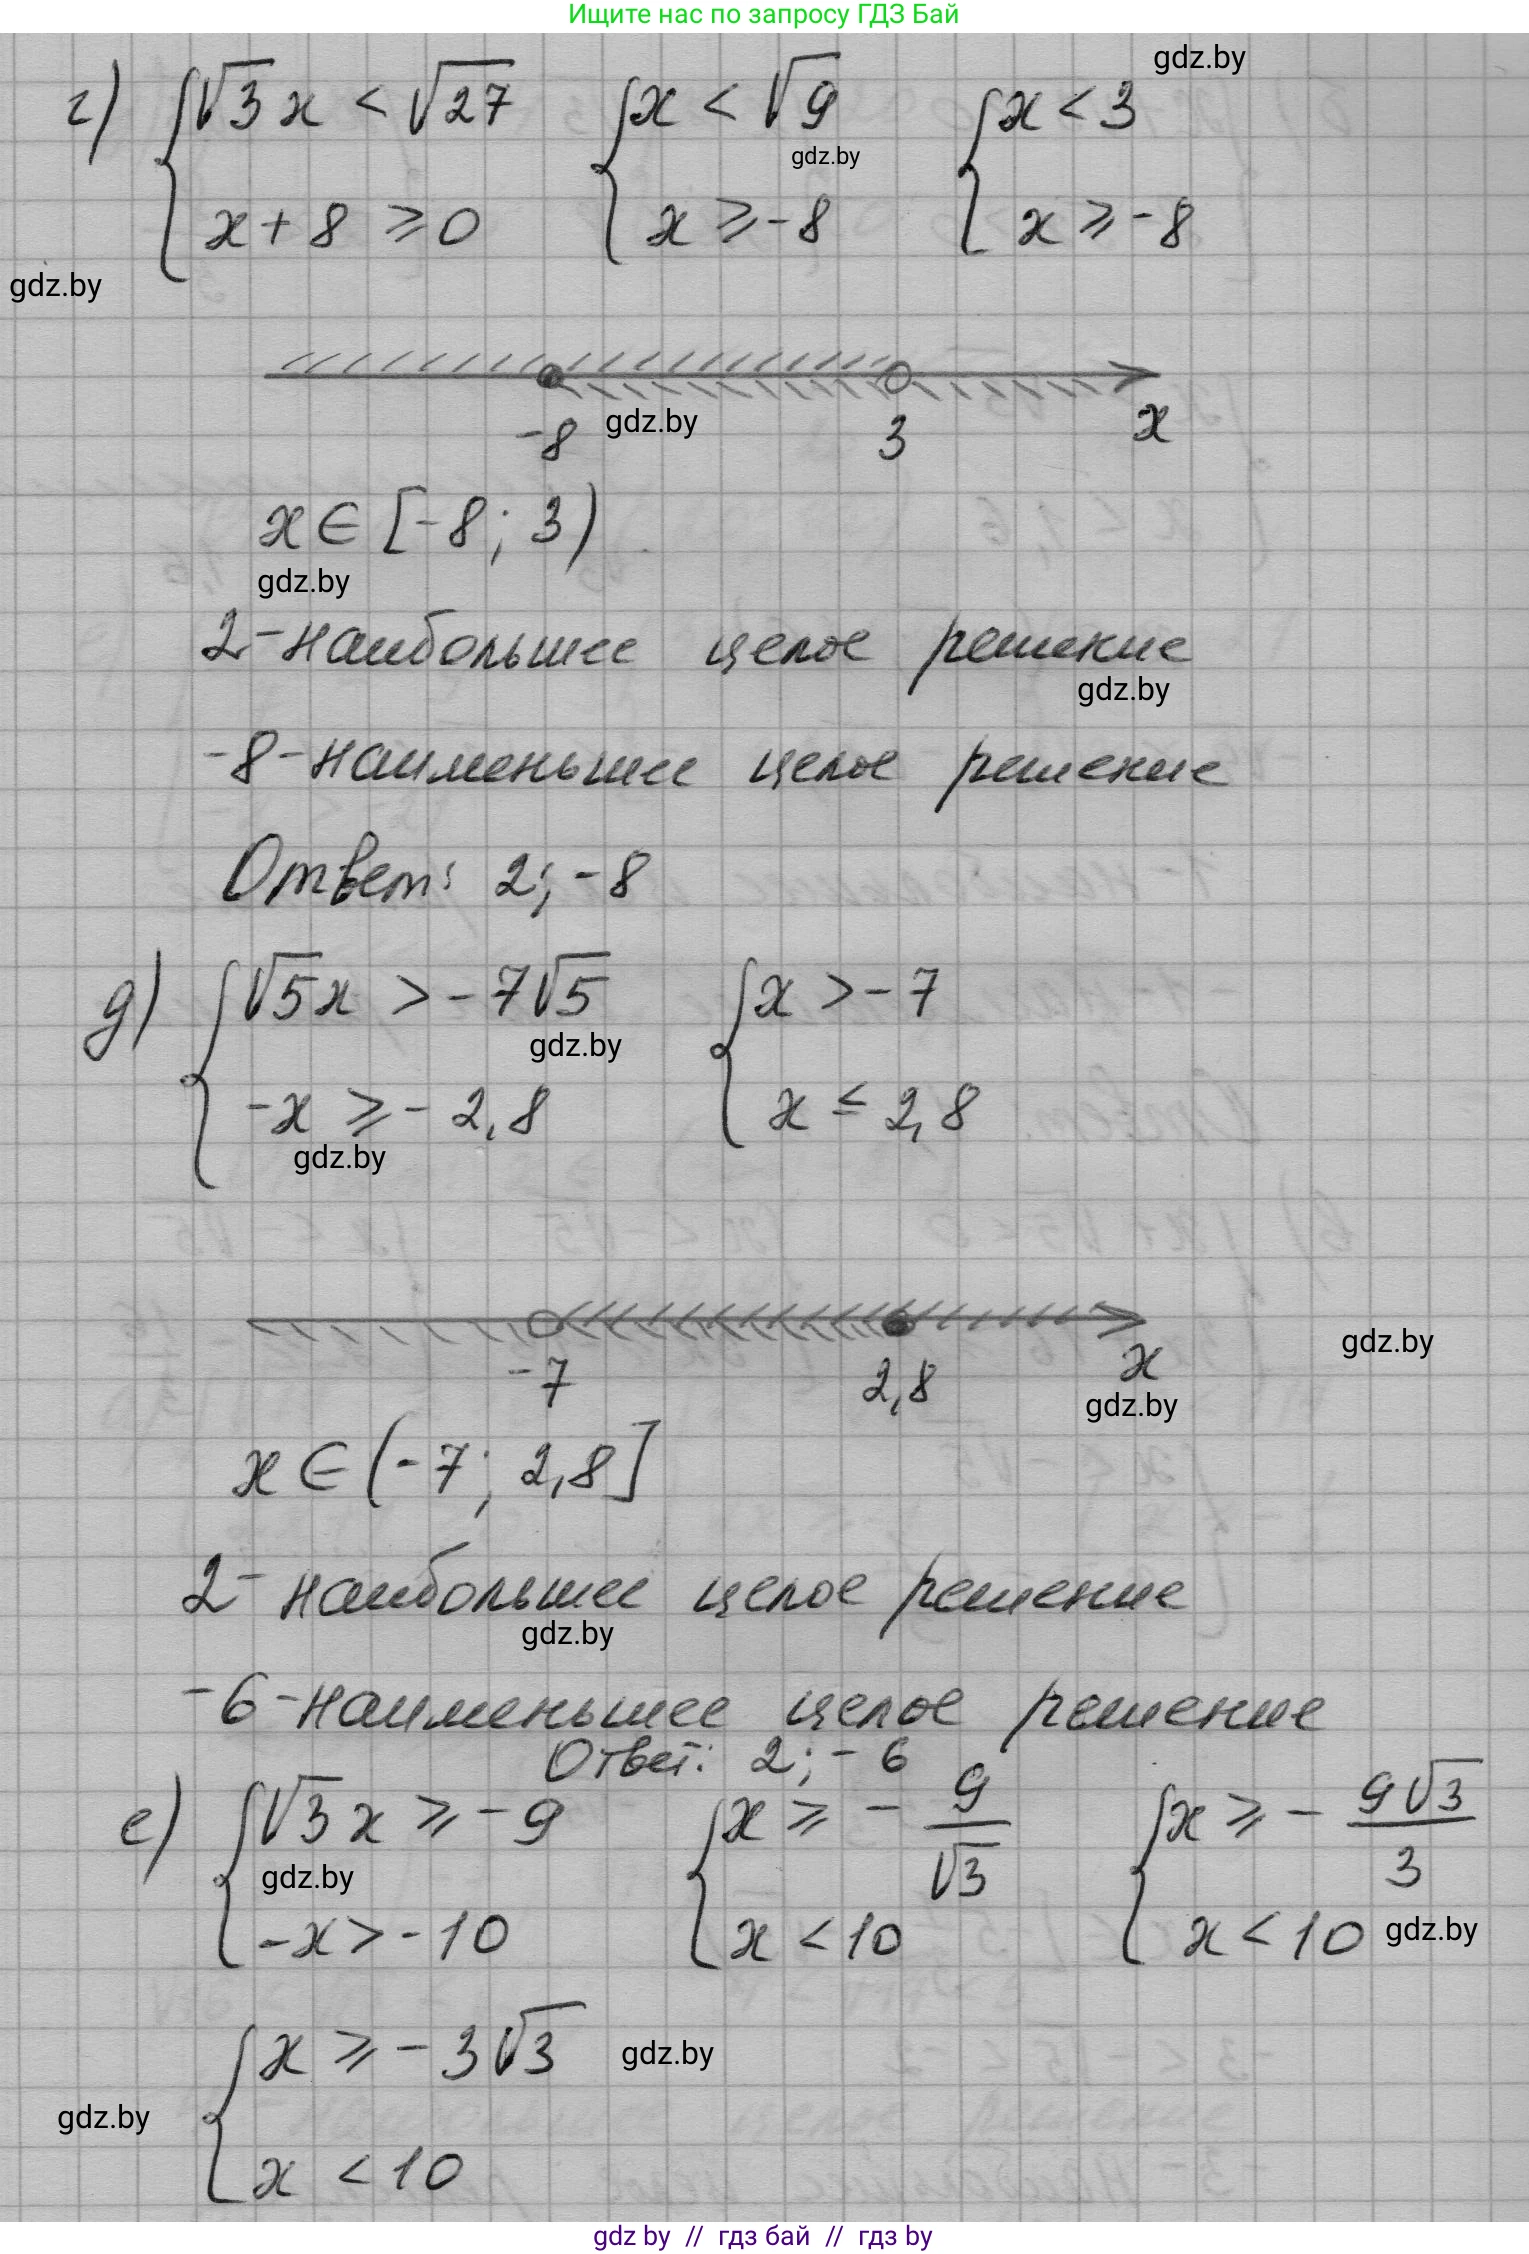 Ищите нас по запросу ГДЗ Бай
gdz.by
г) { √3x < √27 { x < √9 { x < 3
gdz.by
x + 8 ≥ 0 x ≥ -8 x ≥ -8
gdz.by
-8 gdz.by 3 x
x ∈ [-8; 3)
gdz.by
2 - наибольшее целое решение
gdz.by
-8 - наименьшее целое решение
Ответ: 2; -8
д) { √5x > -7√5 { x > -7
gdz.by
-x ≥ -2,8 x ≤ 2,8
gdz.by
gdz.by
-7 2,8 x
gdz.by
x ∈ (-7; 2,8]
2 - наибольшее целое решение
gdz.by
-6 - наименьшее целое решение
Ответ: 2; -6
е) { √3x ≥ -9 { x ≥ - 9/√3 { x ≥ - 9√3/3
gdz.by
-x > -10 x < 10 x < 10 gdz.by
{ x ≥ -3√3 gdz.by
gdz.by
x < 10
gdz by // гдз бай // гдз by